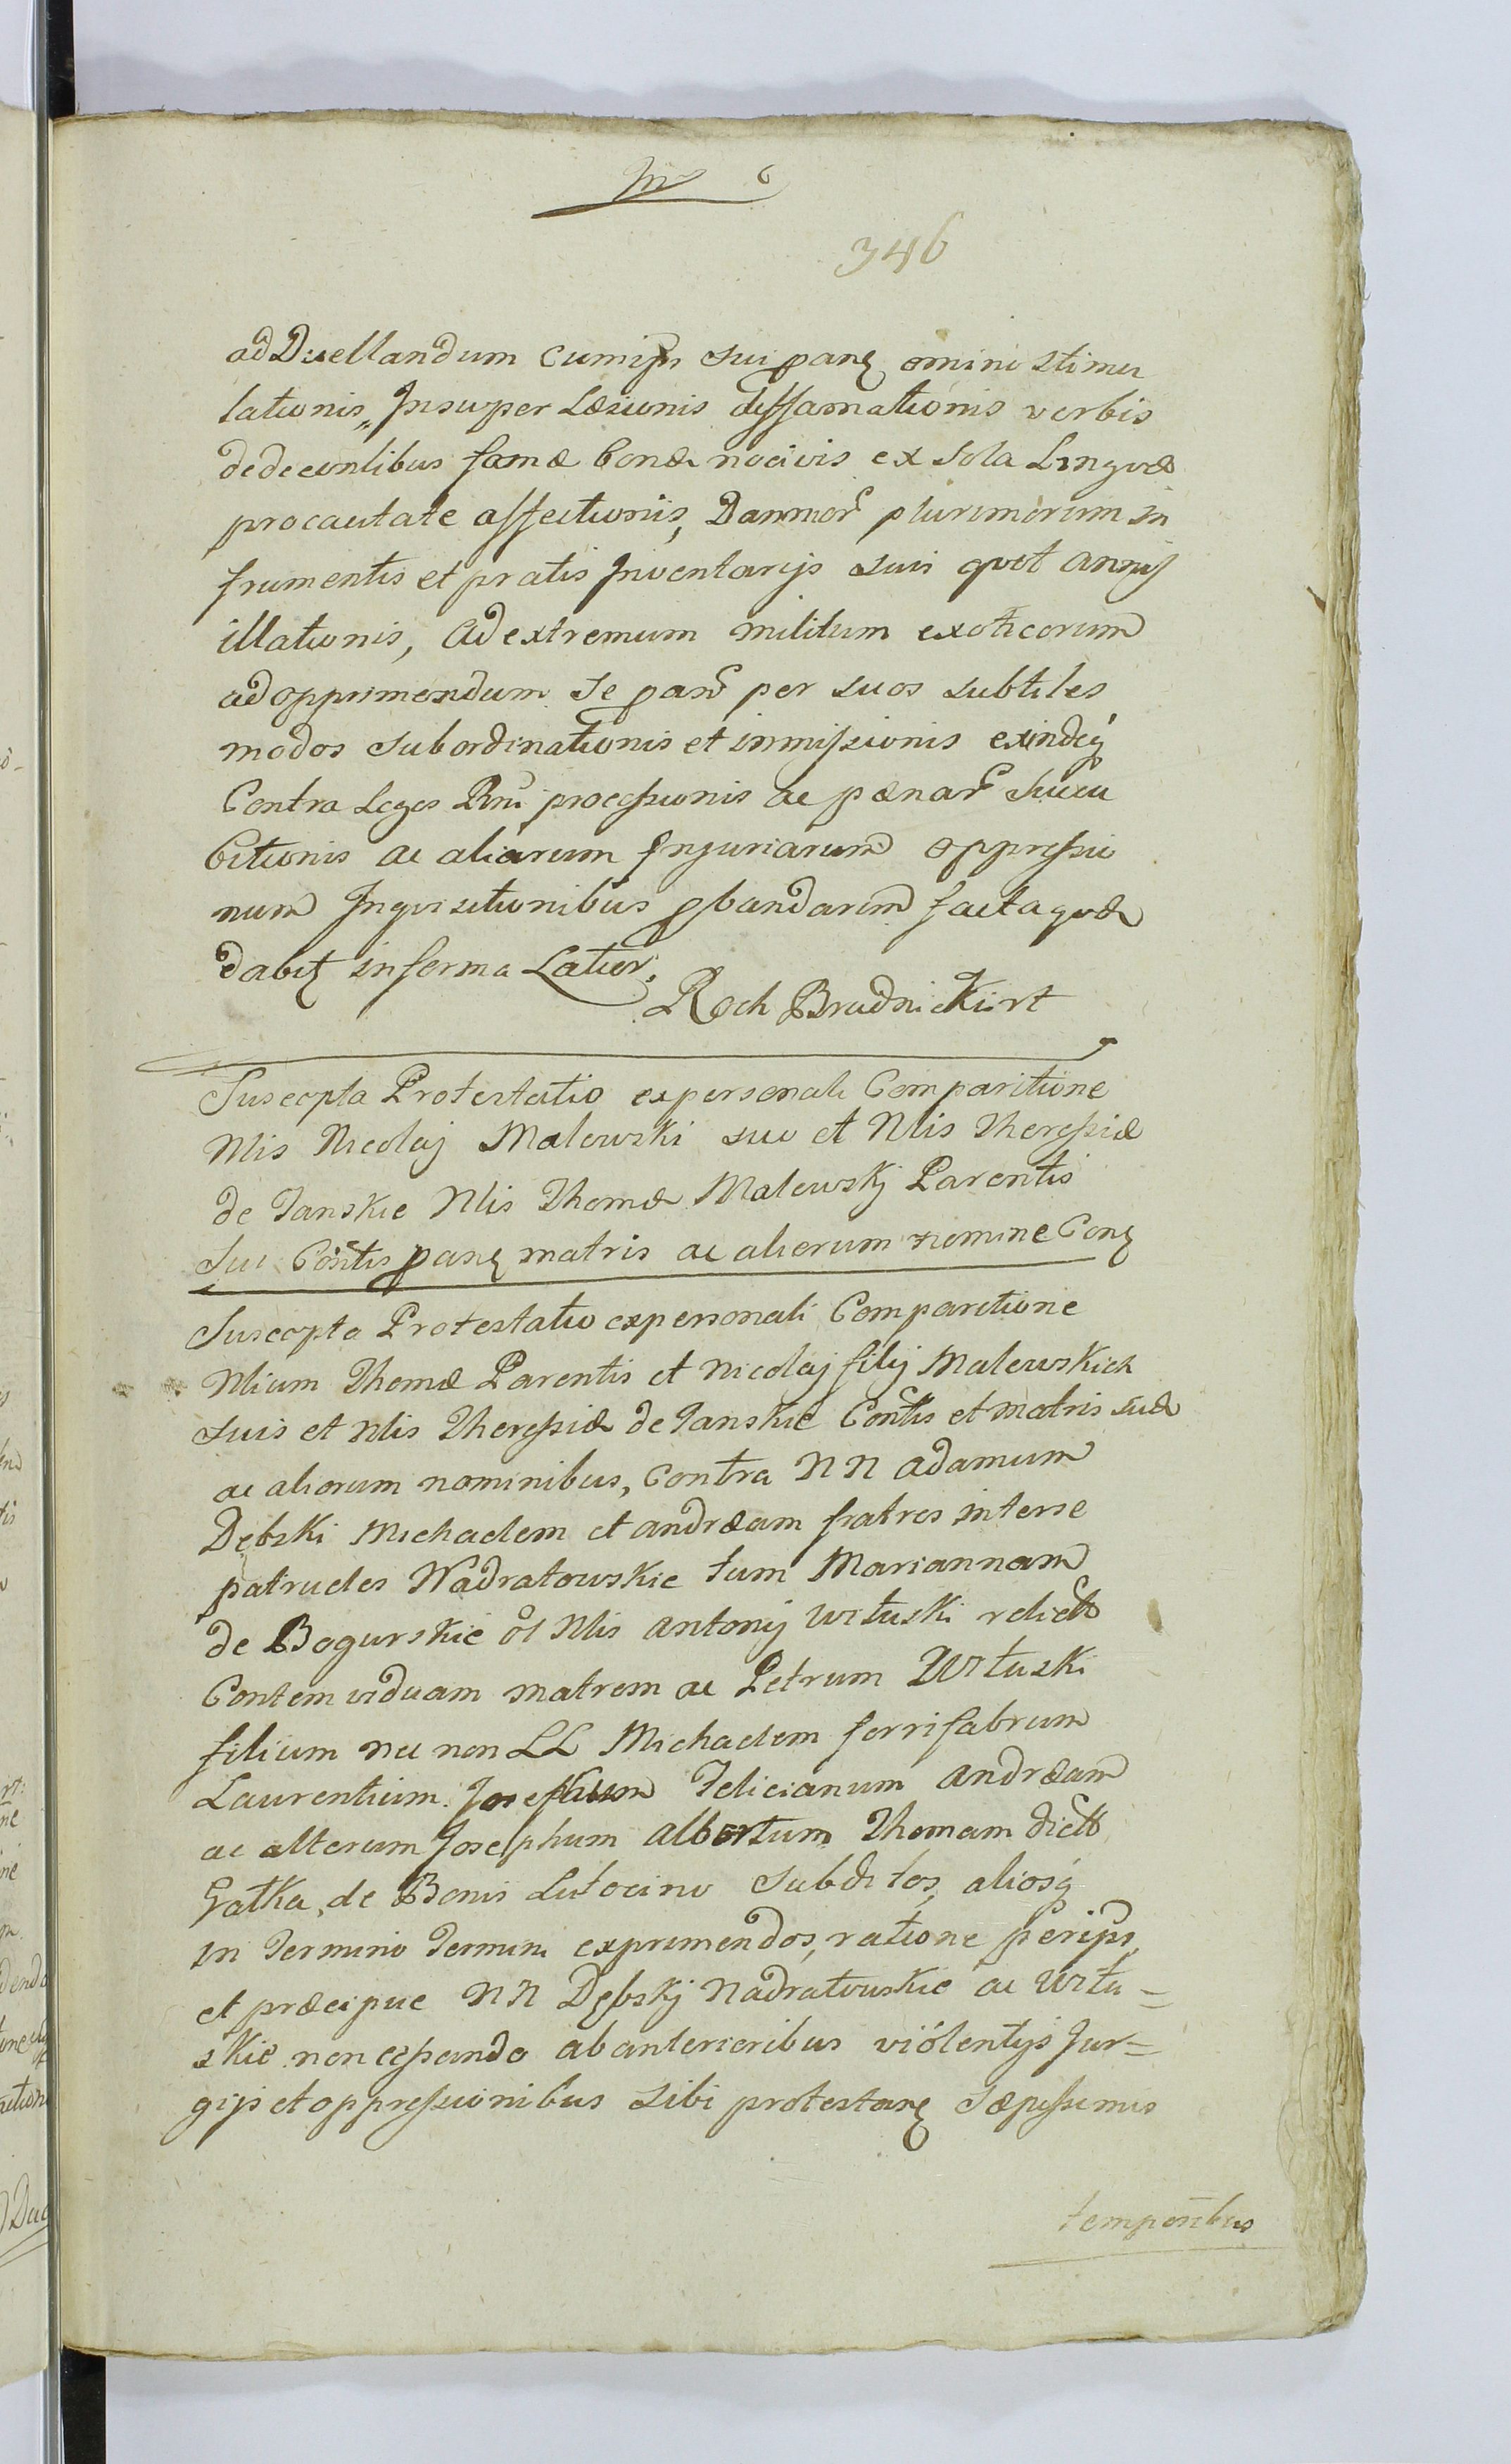 346
ad Duellandum cumips sui panẽ omini stimu
lationis, Insuper Læsionis diffamationis verbis
dedecentibus famæ bonæ nocivis ex sola Lingvæ
procacitate affectionis, Damnor plurimorum in
frumentis et pratis Inventarijs suis qvot annis
illationis, Ad extremum militum exoticorum
ad opprimendum se pañ per suos subtiles
modos subordinationis et immissionis exindeq
Contra Leges Rni processionis ac pænar Succu
bitionis ac aliarum Injuriarum oppressio
num Inqvisitionibus pbandarum facta qvæ
dabit in forma Latior.
Roch Brudnicki rt
Suscepta Protestatio ex personali Comparitione
Nlis Nicolaj Malewski suo et Nlis Theressiæ
de Janskie Nlis Thomæ Malewskj Parentis
Sui Cõntis panẽ matris ac aliorum nomine Conẽ
Suscepta Protestatio ex personali Comparitione
Nlium Thomæ Parentis et Nicolaj filij Malewskich
suis et Nlis Theressiæ de Janskie Contis et matris suæ
ac aliorum nominibus, Contra NN Adamum
Dębski Michaelem et Andræam fratres interse
patrueles Nadratowskie tum Mariannam
de Bogurskie ol Nlis Antonij Wituski relict
Contem viduam matrem ac Petrum Wituski
filium nec non LL Michaelem ferrifabrum
Laurentium Josephum Felicianum Andræam
ac alterum Josephum Albertum Thomam dict
Gałka, de Bonis Lutocino Subditos, aliosq
in Termino Termini exprimendos, ratione Perips,
et præcipue NN Dębskj Nadratowskie ac Witu=
skie non cessando ab anterioribus violentijs Jur=
gijs et oppressionibus sibi protestanẽ sæpissimis
temporibus